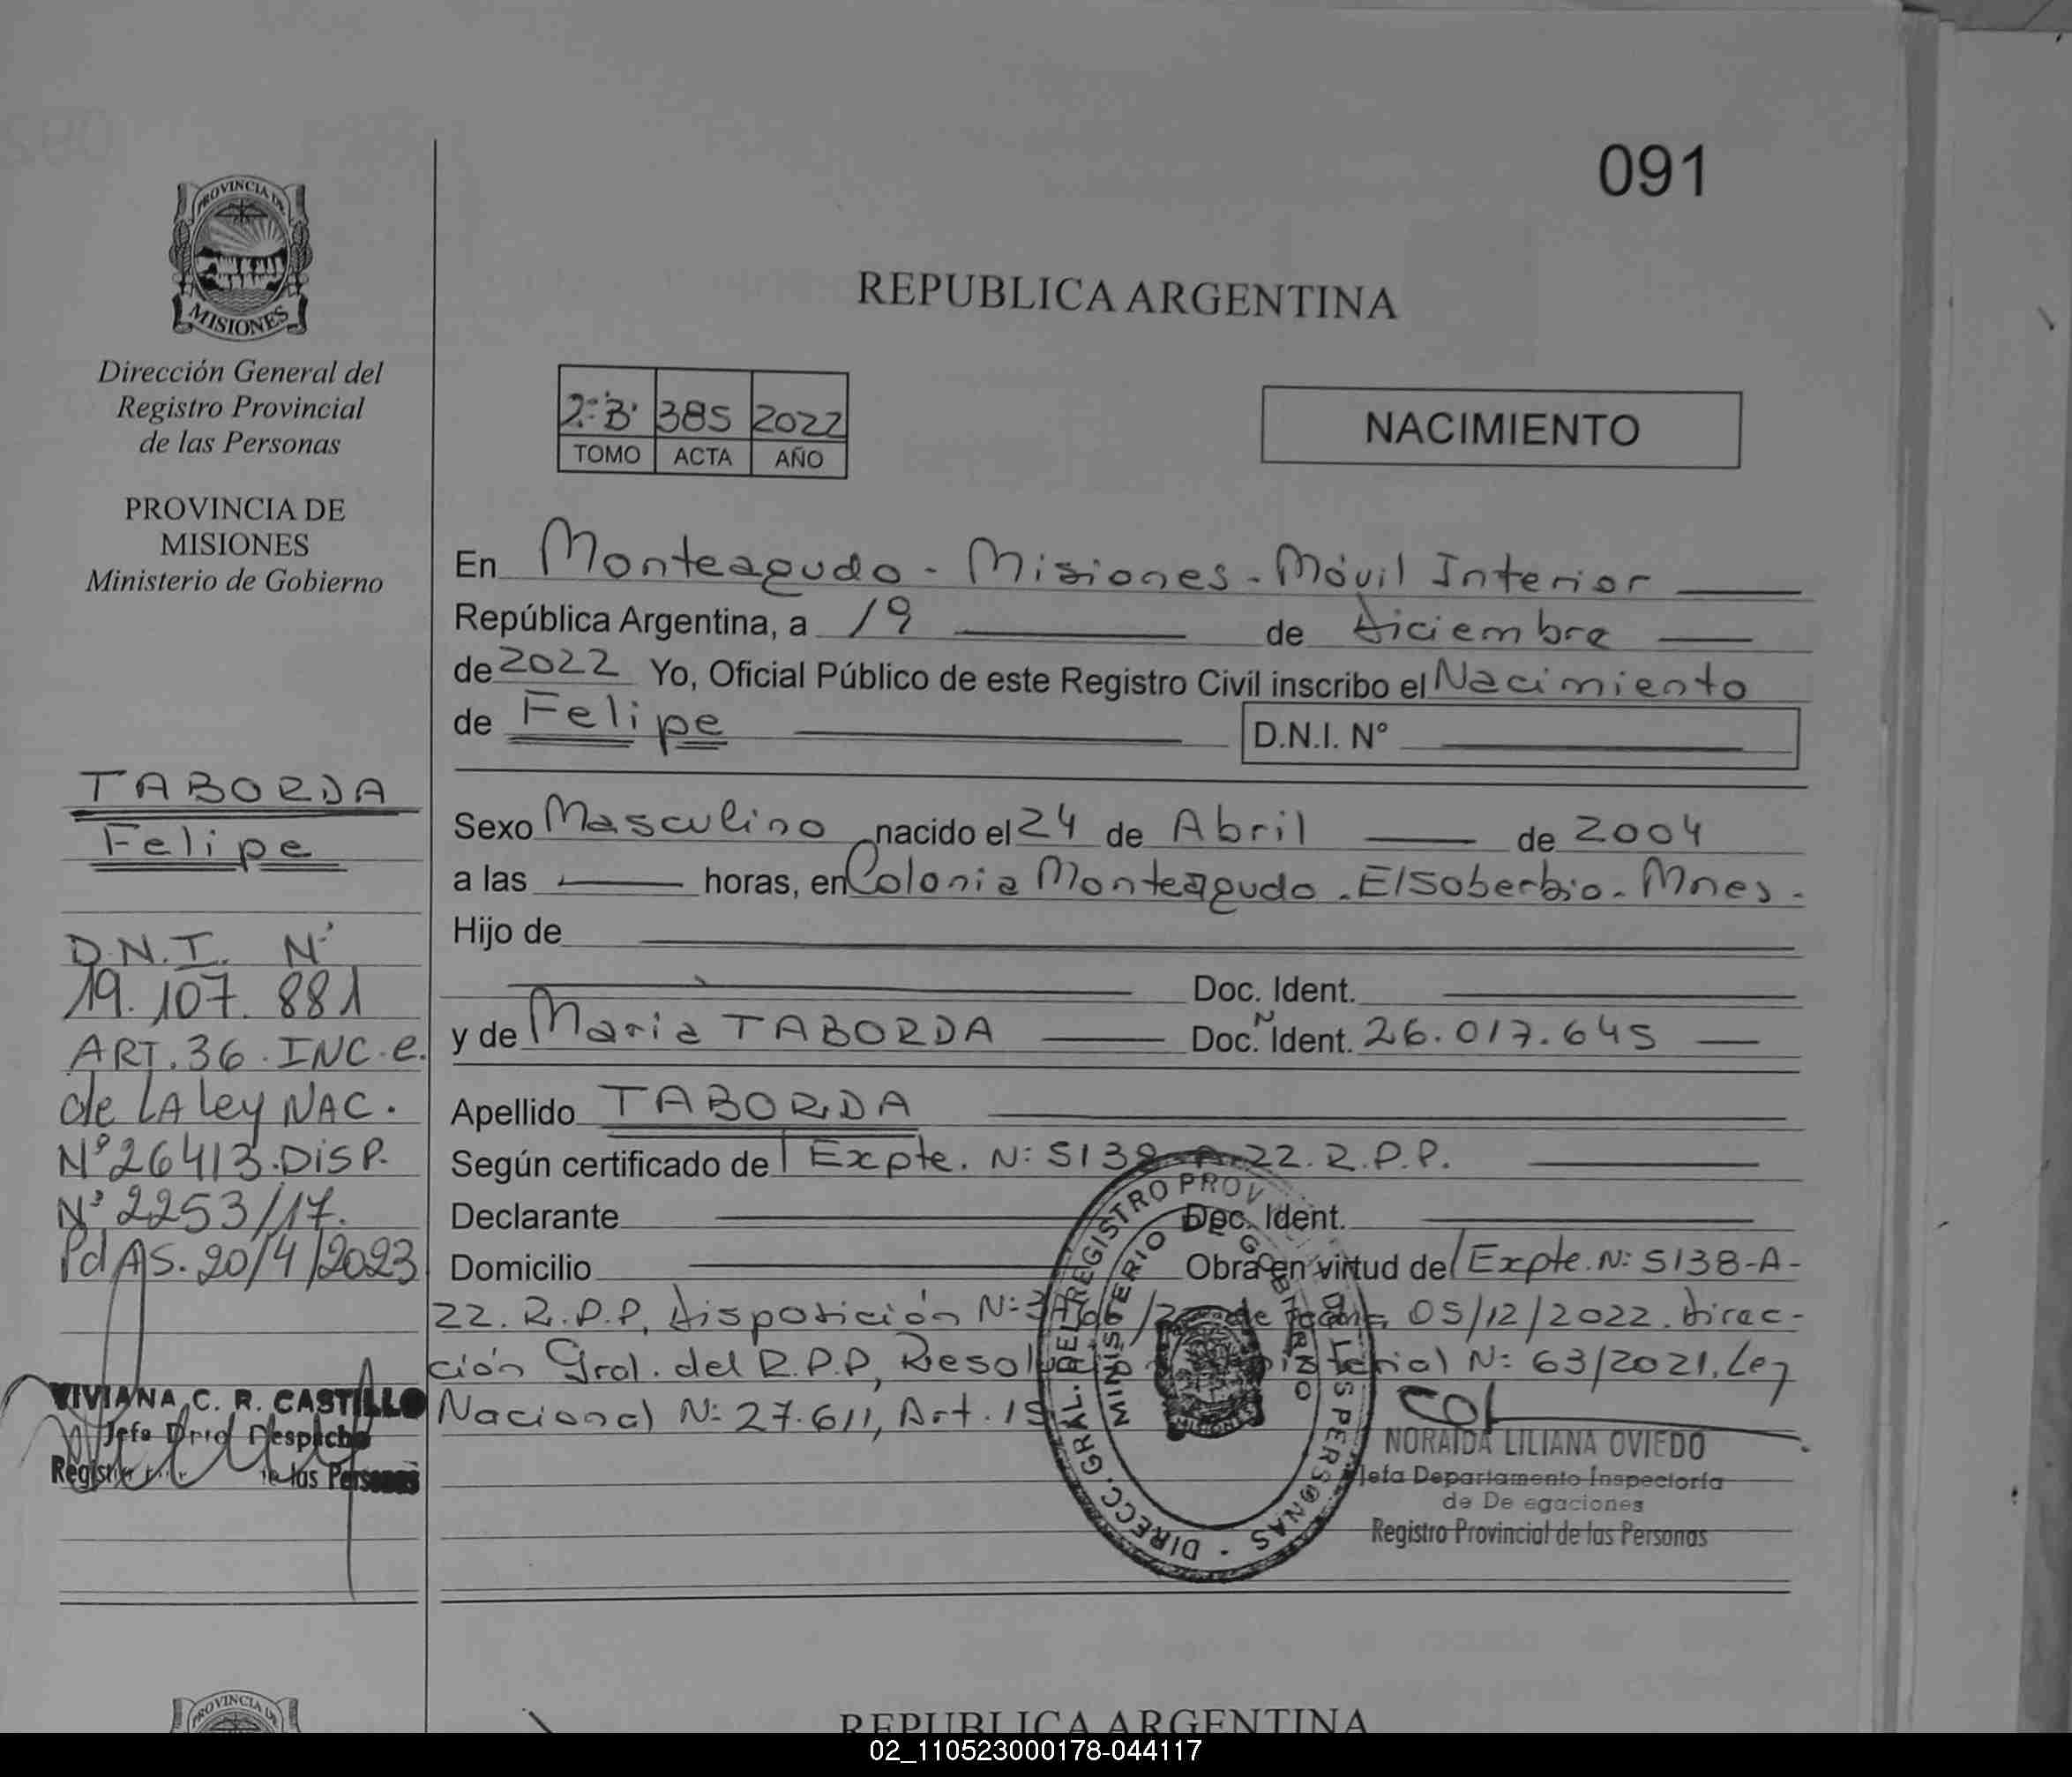 091
PROVINCIA DE
MISIONES
Dirección General del
Registro Provincial
de las Personas
PROVINCIA DE
MISIONES
Ministerio de Gobierno
TABORDA
Felipe
D.N.I. Nº
19.107.881
ART.36.INC.e.
de LA ley NAC.
Nº26413.DISP.
Nº 2253/17.
Pd AS. 20/4/2023
VIVIANA C. R. CASTILLO
Jefe Despacho
de las Personas
REPUBLICA ARGENTINA
2º"B" 385 2022
TOMO ACTA AÑO
NACIMIENTO
En Monteagudo - Misiones - Móvil Interior
República Argentina, a 19 de diciembre
de 2022 Yo, Oficial Público de este Registro Civil inscribo el Nacimiento
de Felipe D.N.I. Nº
Sexo Masculino nacido el 24 de Abril de 2004
a las horas, en Colonia Monteagudo - El Soberbio - Mnes -
Hijo de
Doc. Ident.
y de Maria TABORDA Doc. Ident. 26.017.645
Apellido TABORDA
Según certificado de Expte. Nº 5138-A-22. R.P.P.
Declarante Doc. Ident.
Domicilio Obra en virtud de Expte. Nº 5138-A-
22. R.P.P, disposición Nº de fecha 05/12/2022. direc-
ción Gral. del R.P.P, Resol Nº 63/2021, Ley
Nacional Nº 27.611, Art. 15
DIRECC. GRAL. DEL REGISTRO PROV DE LAS PERSONAS
MINISTERIO DE GOBIERNO
NORAIDA LILIANA OVIEDO
Jefa Departamento Inspectoría
de De egaciones
Registro Provincial de las Personas
PROVINCIA
REPUBLICA ARGENTINA
02_110523000178-044117